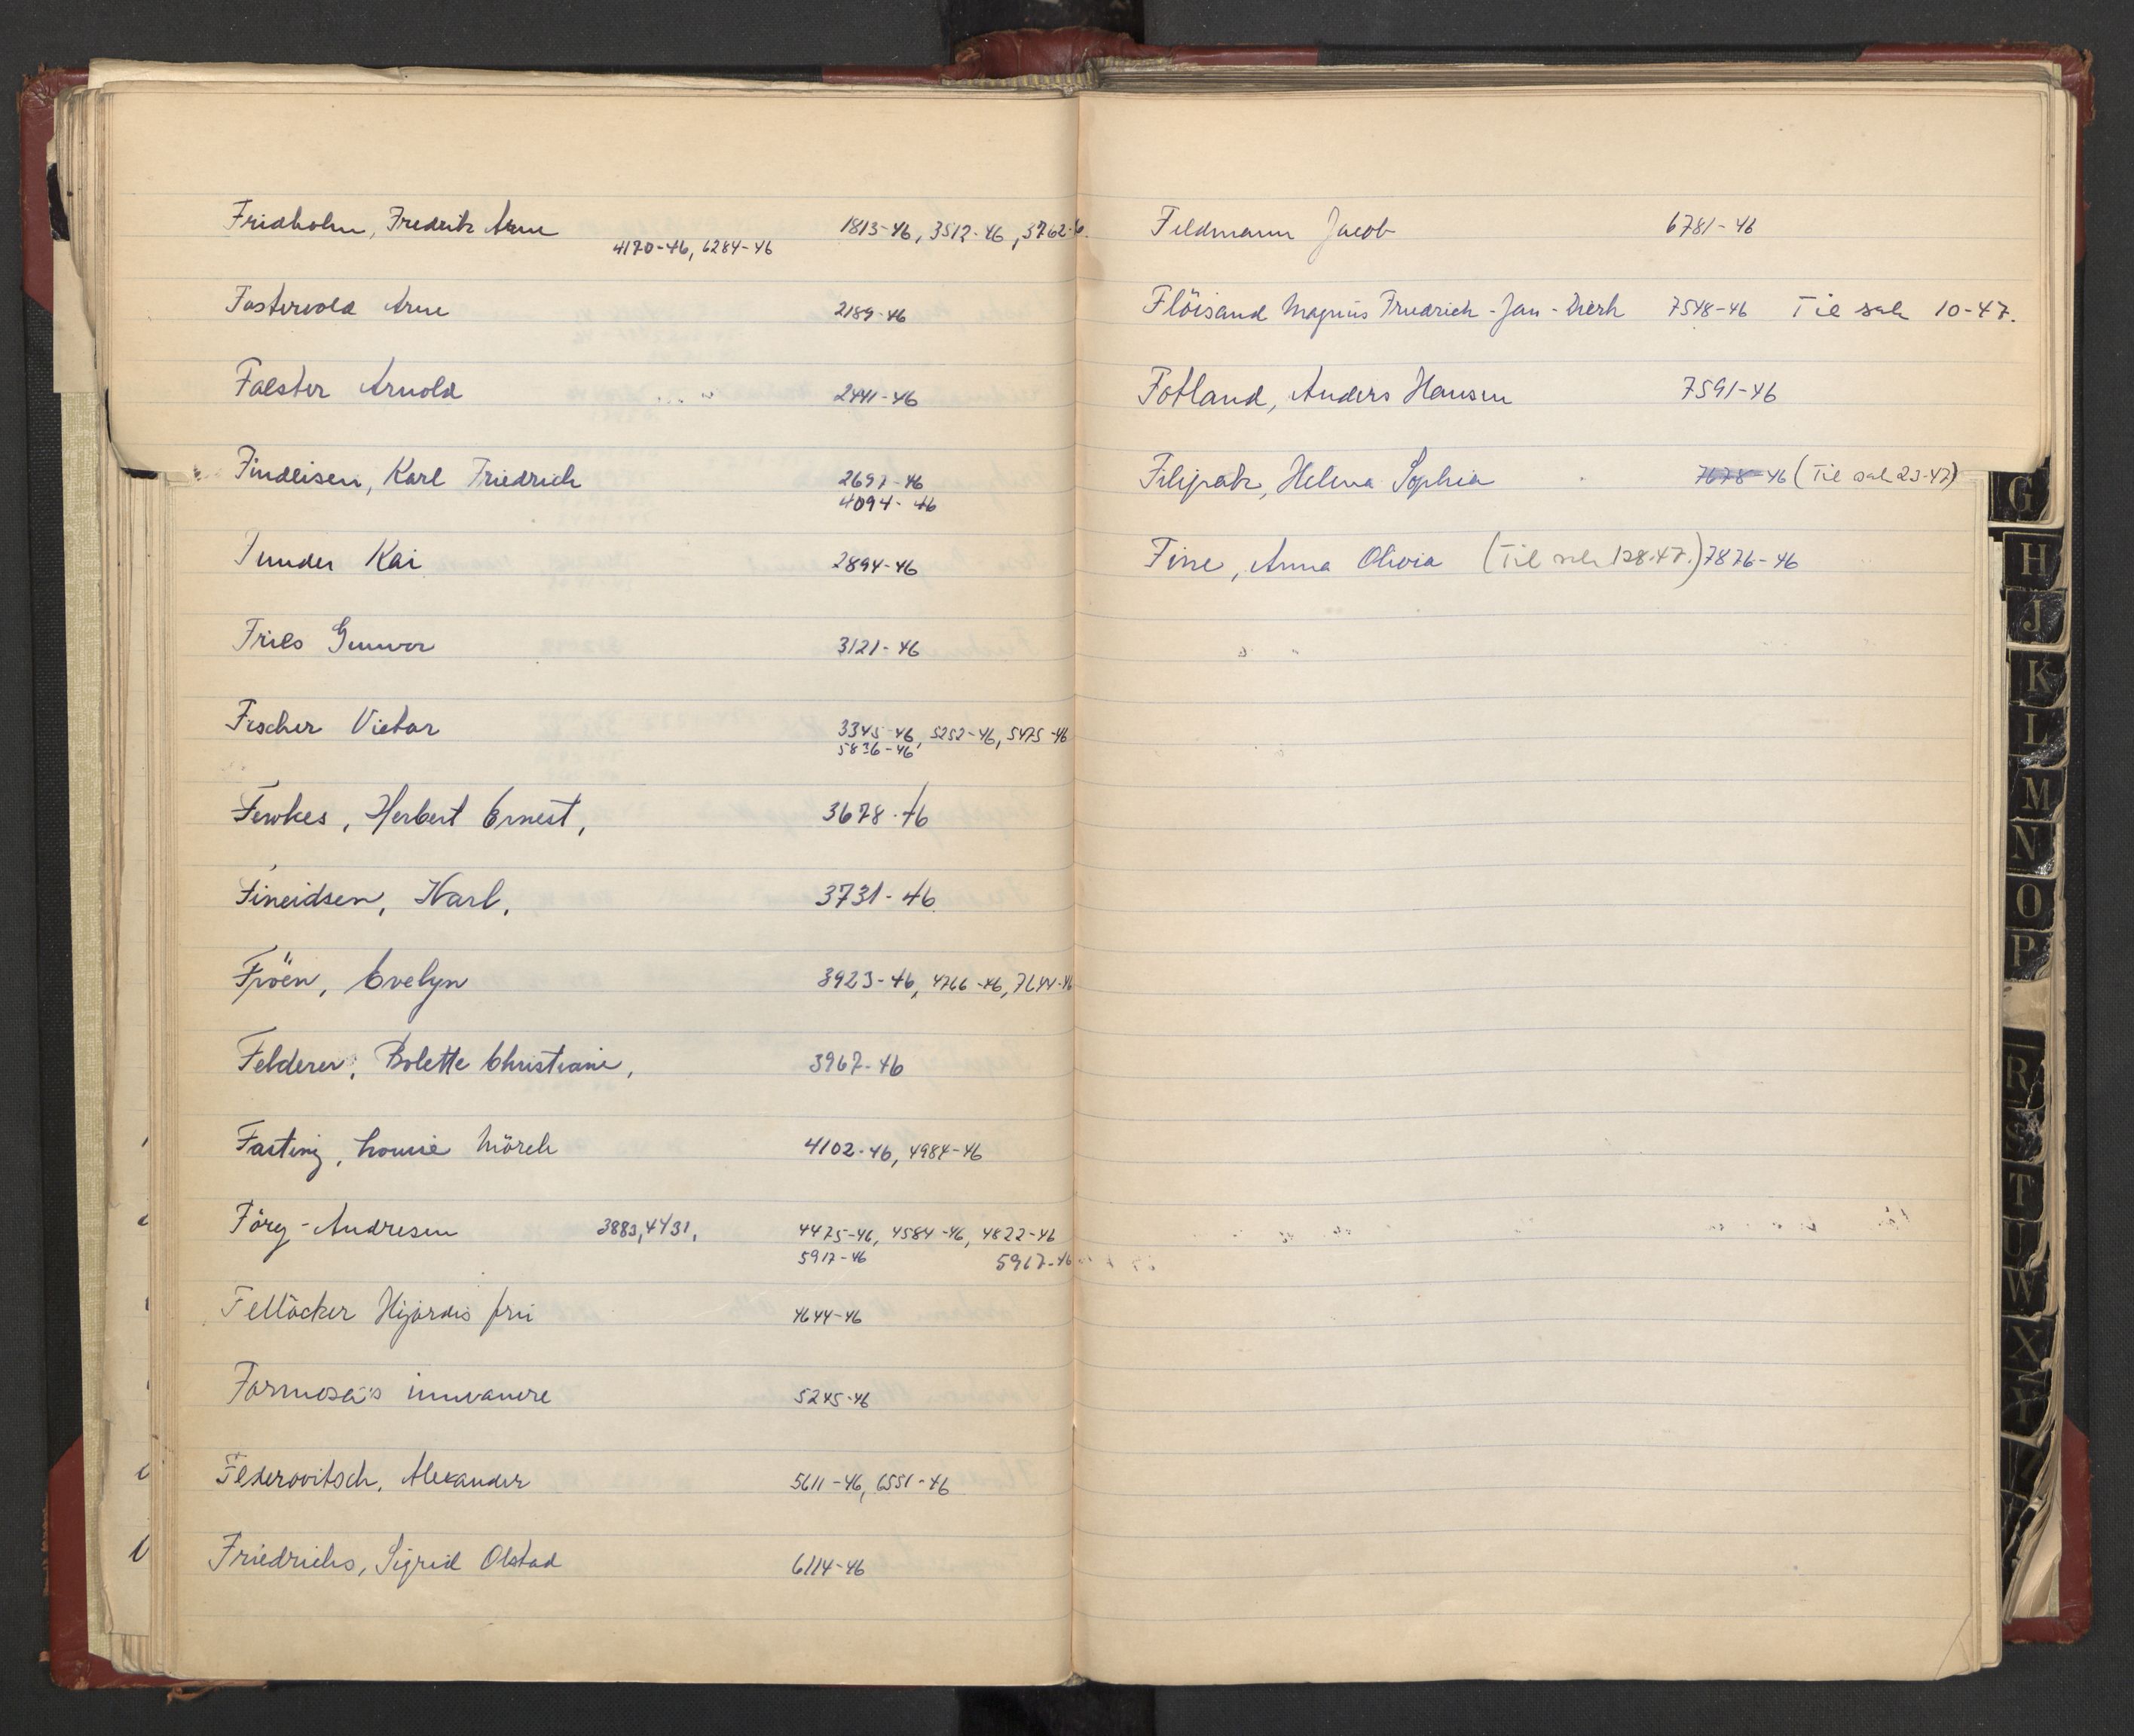 Fridholm, Fredrik Arne 1813-46, 3512-46, 3762-6.
4170-46, 6284-46
Fostervold Arne 2189-46
Falster Arnold 2441-46
Findeisen, Karl Friedrich 2697-46
4094-46
Funder Kai 2894-46
Fries Gunvor 3121-46
Fischer Victor 3345-46, 5252-46, 5475-46
5836-46
Fewkes, Herbert Ernest, 3678-46
Fineidsen, Karl, 3731-46
Fröen, Evelyn 3923-46, 4766-46, 7644-46
Felderer, Bolette Christiane, 3967-46
Fasting, Louise Mörch 4102-46, 4984-46
Förg-Andresen 3883, 4431, 4475-46, 4584-46, 4822-46
5917-46 5967-46
Fellöcker Hjördis fru 4644-46
Formosa's innvånere 5245-46
Federovitsch, Alexander 5611-46, 6551-46
Friedrichs, Sigrid Olstad 6114-46
Feldmann Jacob 6781-46
Flöisand Magnus Friedrich-Jan- 7548-46 Til sak 10-47.
Fotland, Anders Hansen 7591-46
Filipak, Helena Sophia 7678-46 (Til sak 23-47)
Fine, Anna Olivia (Til sak 128.47.) 7876-46
G
H
J
K
L
M
N
O
P
R
S
T
U
W
X
Y